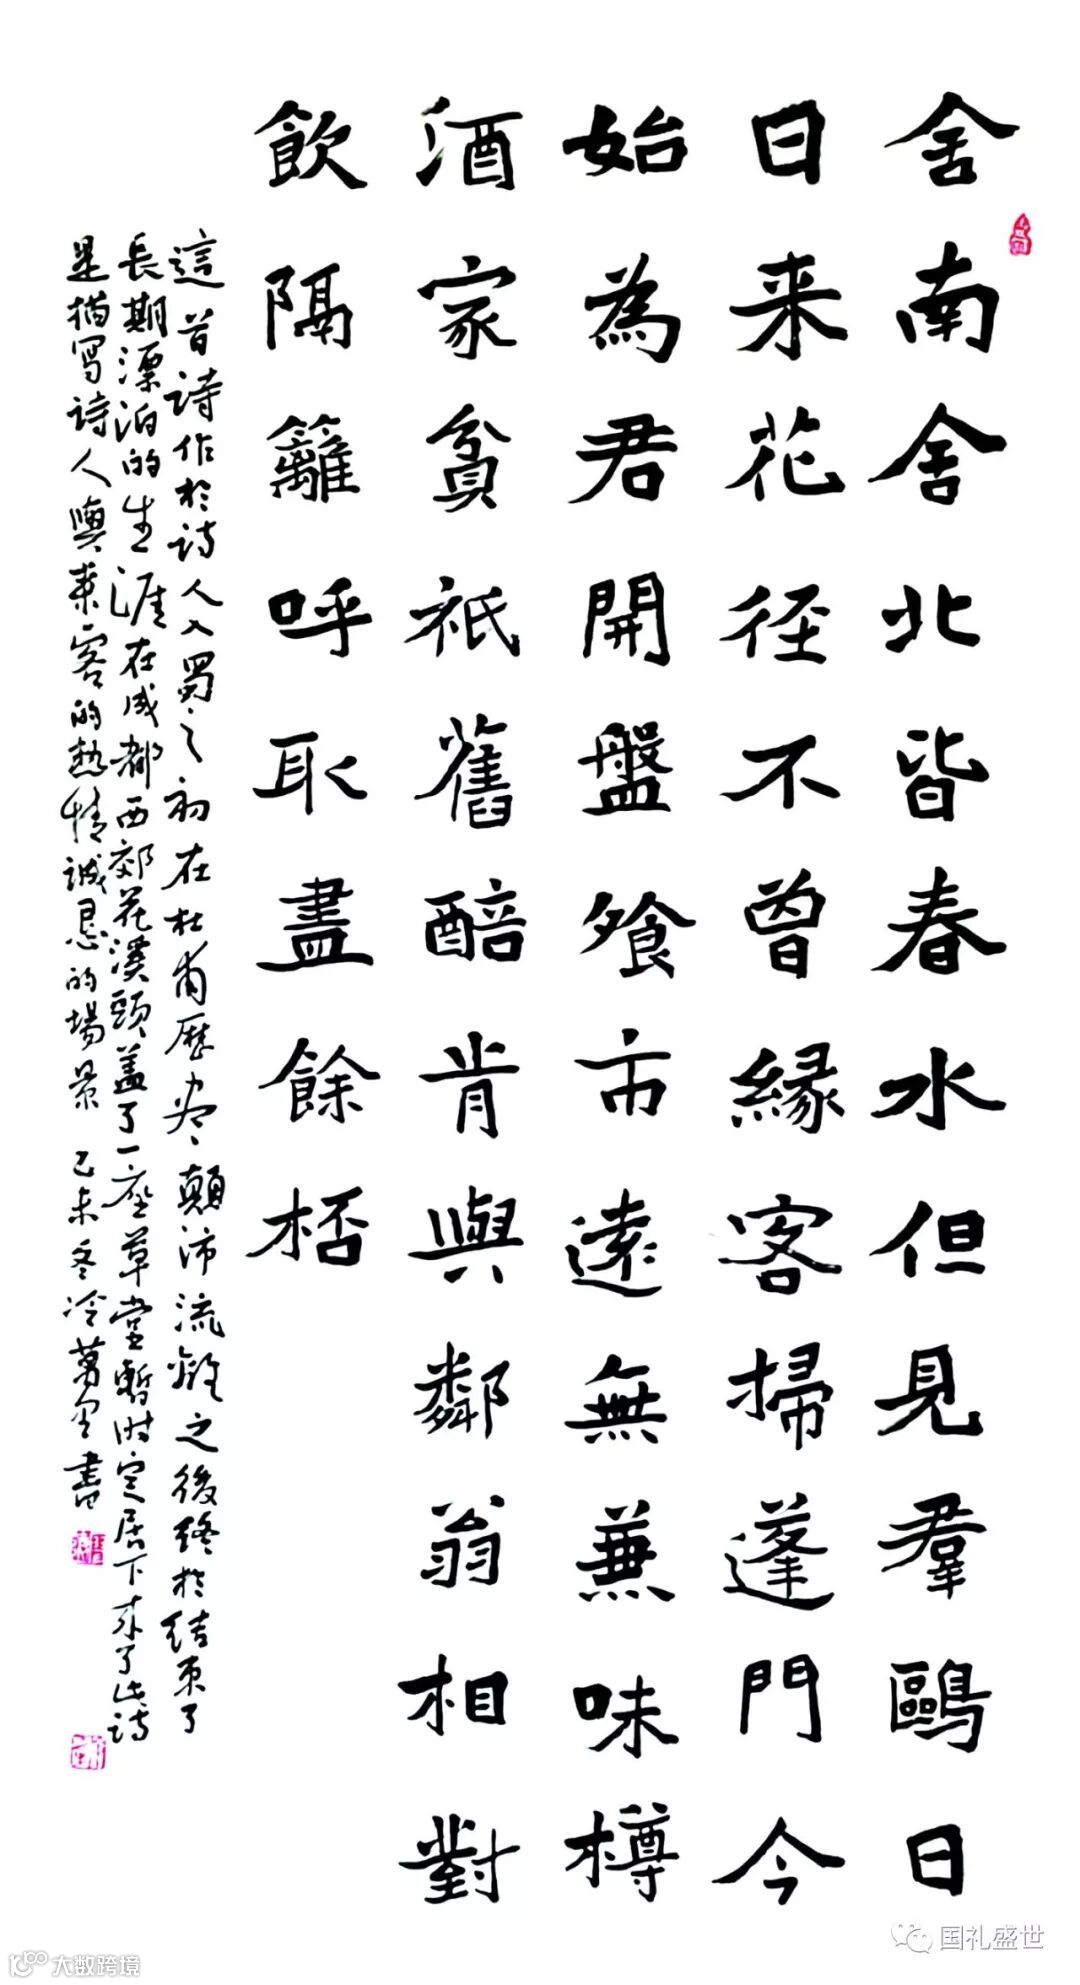 舍南舍北皆春水但見羣鷗日
日来花径不曾緣客掃蓬門今
始為君開盤飧市遠無兼味樽
酒家貧祇舊醅肯與鄰翁相對
飲隔籬呼取盡餘桮
這首诗作於诗人入蜀之初在杜甫歷尽顛沛流離之後终於结束了
長期漂泊的生涯在成都西郊花溪頭盖了一座草堂暫时定居下来了此诗
是描写诗人與来客的热情誠恳的場景 己未冬冷萬里書
国礼盛世
大数跨境